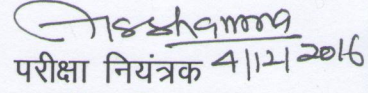 परीक्षा नियंत्रक 4/12/2016